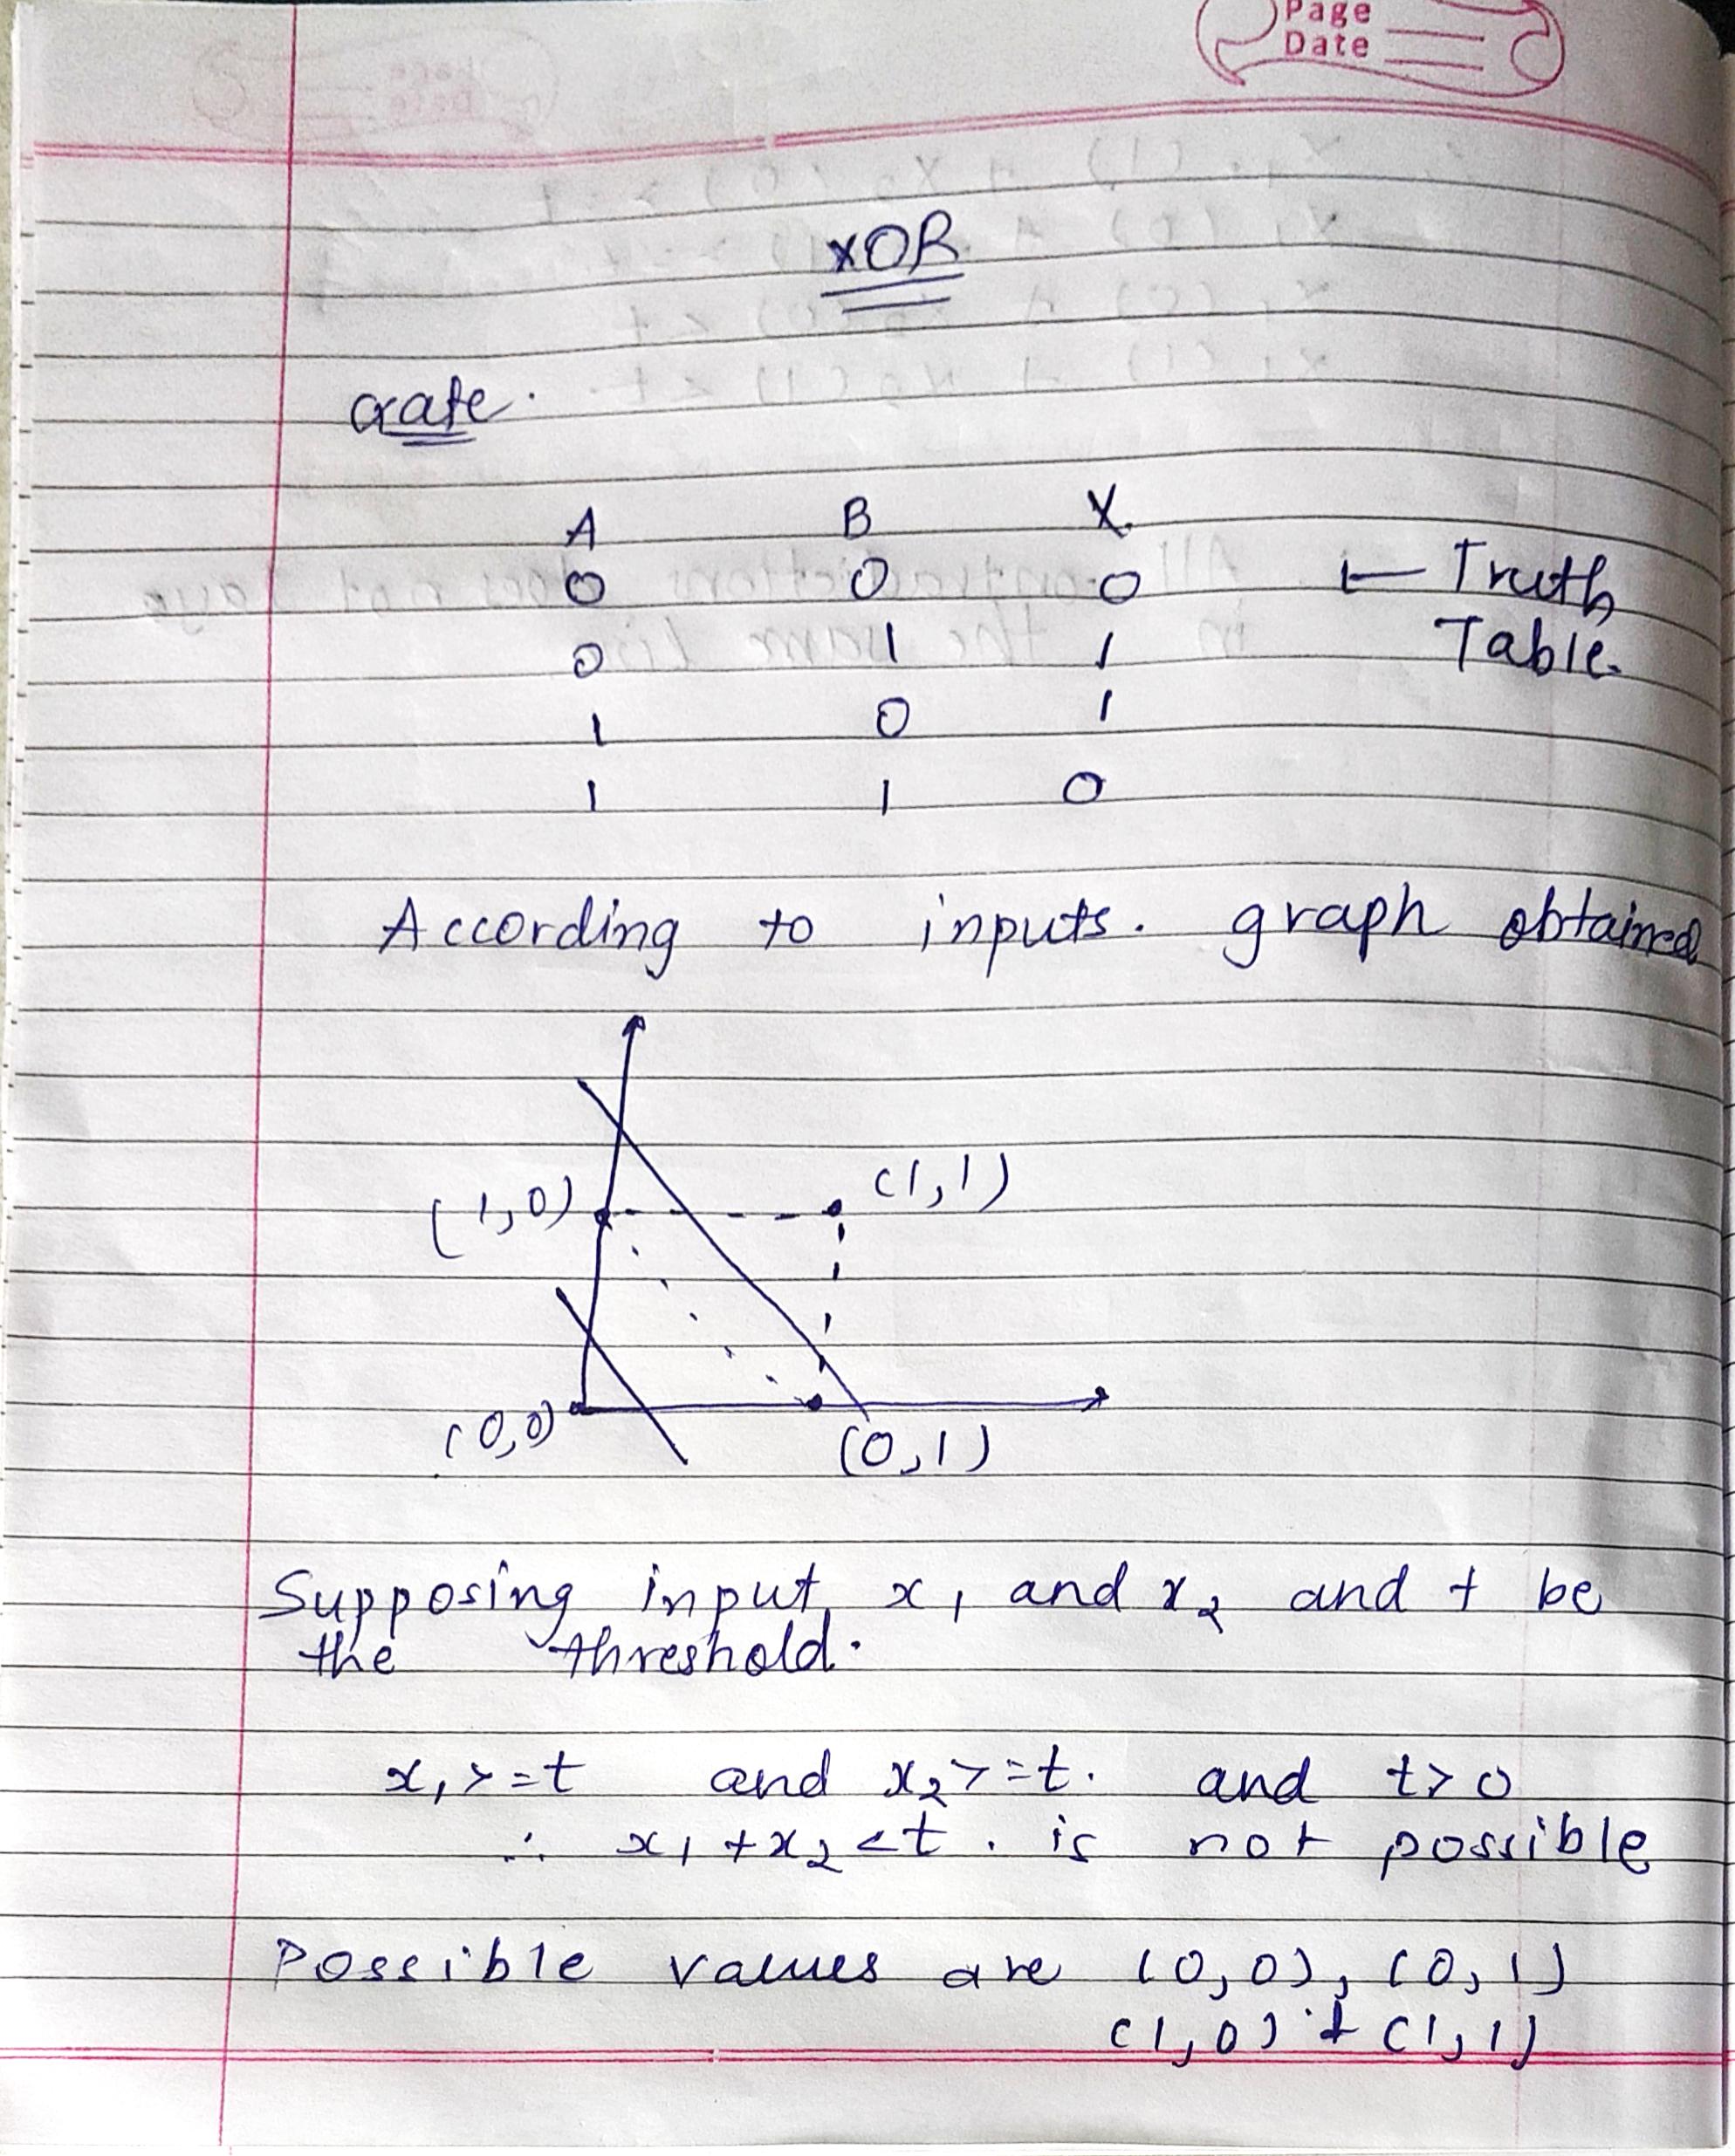 Page
Date
XOR
Gate.
A B X
0 0 0 ← Truth
0 1 1 Table.
1 0 1
1 1 0
According to inputs. graph obtained
(1,0) (1,1)
(0,0) (0,1)
Supposing input x1 and x2 and t be
the threshold.
x1 >= t and x2 >= t. and t > 0
∴ x1 + x2 < t. is not possible
Possible values are (0,0), (0,1)
(1,0) & (1,1)